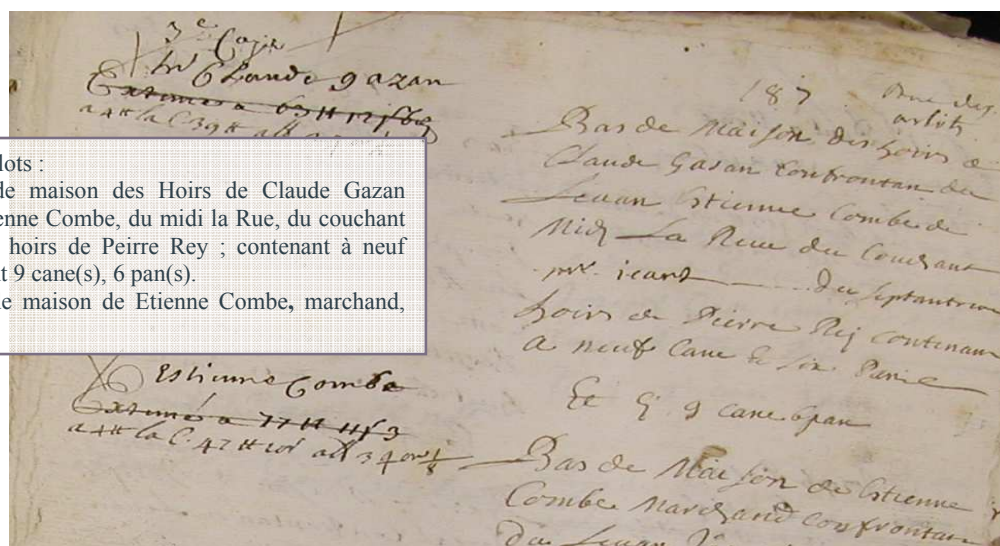 3e Cayr
hrs Claude gazan
Extimés a 63 tt 12 s 6 d
lots :
de maison des Hoirs de Claude Gazan
ienne Combe, du midi la Rue, du couchant
hoirs de Peirre Rey ; contenant à neuf
t 9 cane(s), 6 pan(s).
e maison de Etienne Combe, marchand,
Estienne Combe
Extimé a 77 tt 11 s 3
187
Rue des
arlits
Bas de Maison des hoirs de
Claude Gasan Confrontan du
Levan Estienne Combe de
Midy La Rue du Couchant
mre icard du Septantrion
hoirs de Pierre Rey contenant
a neuf Cane & six Pans
Et 9 cane 6 pan
Bas de Maison de Estienne
Combe Marchand Confrontan
du Levan